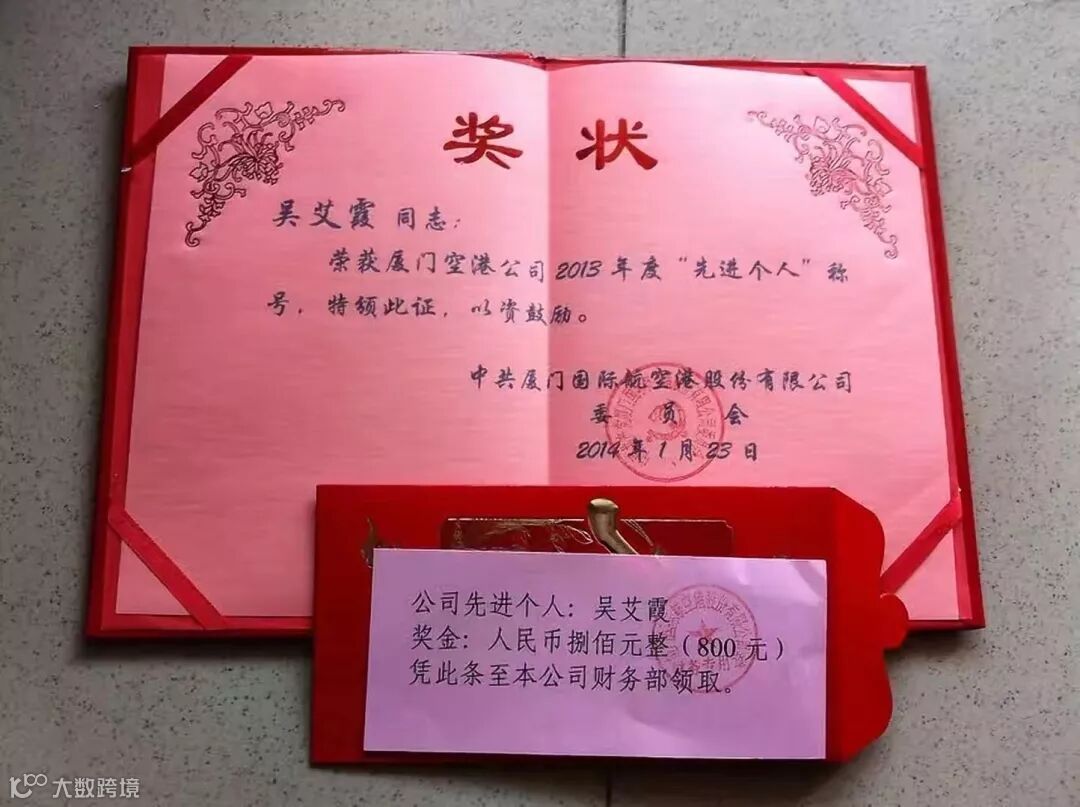 奖状
吴艾霞 同志：
荣获厦门空港公司2013年度“先进个人”称
号，特颁此证，以资鼓励。
中共厦门国际航空港股份有限公司
委员会
2014年1月23日
公司先进个人：吴艾霞
奖金：人民币捌佰元整（800元）
凭此条至本公司财务部领取。
大数跨境